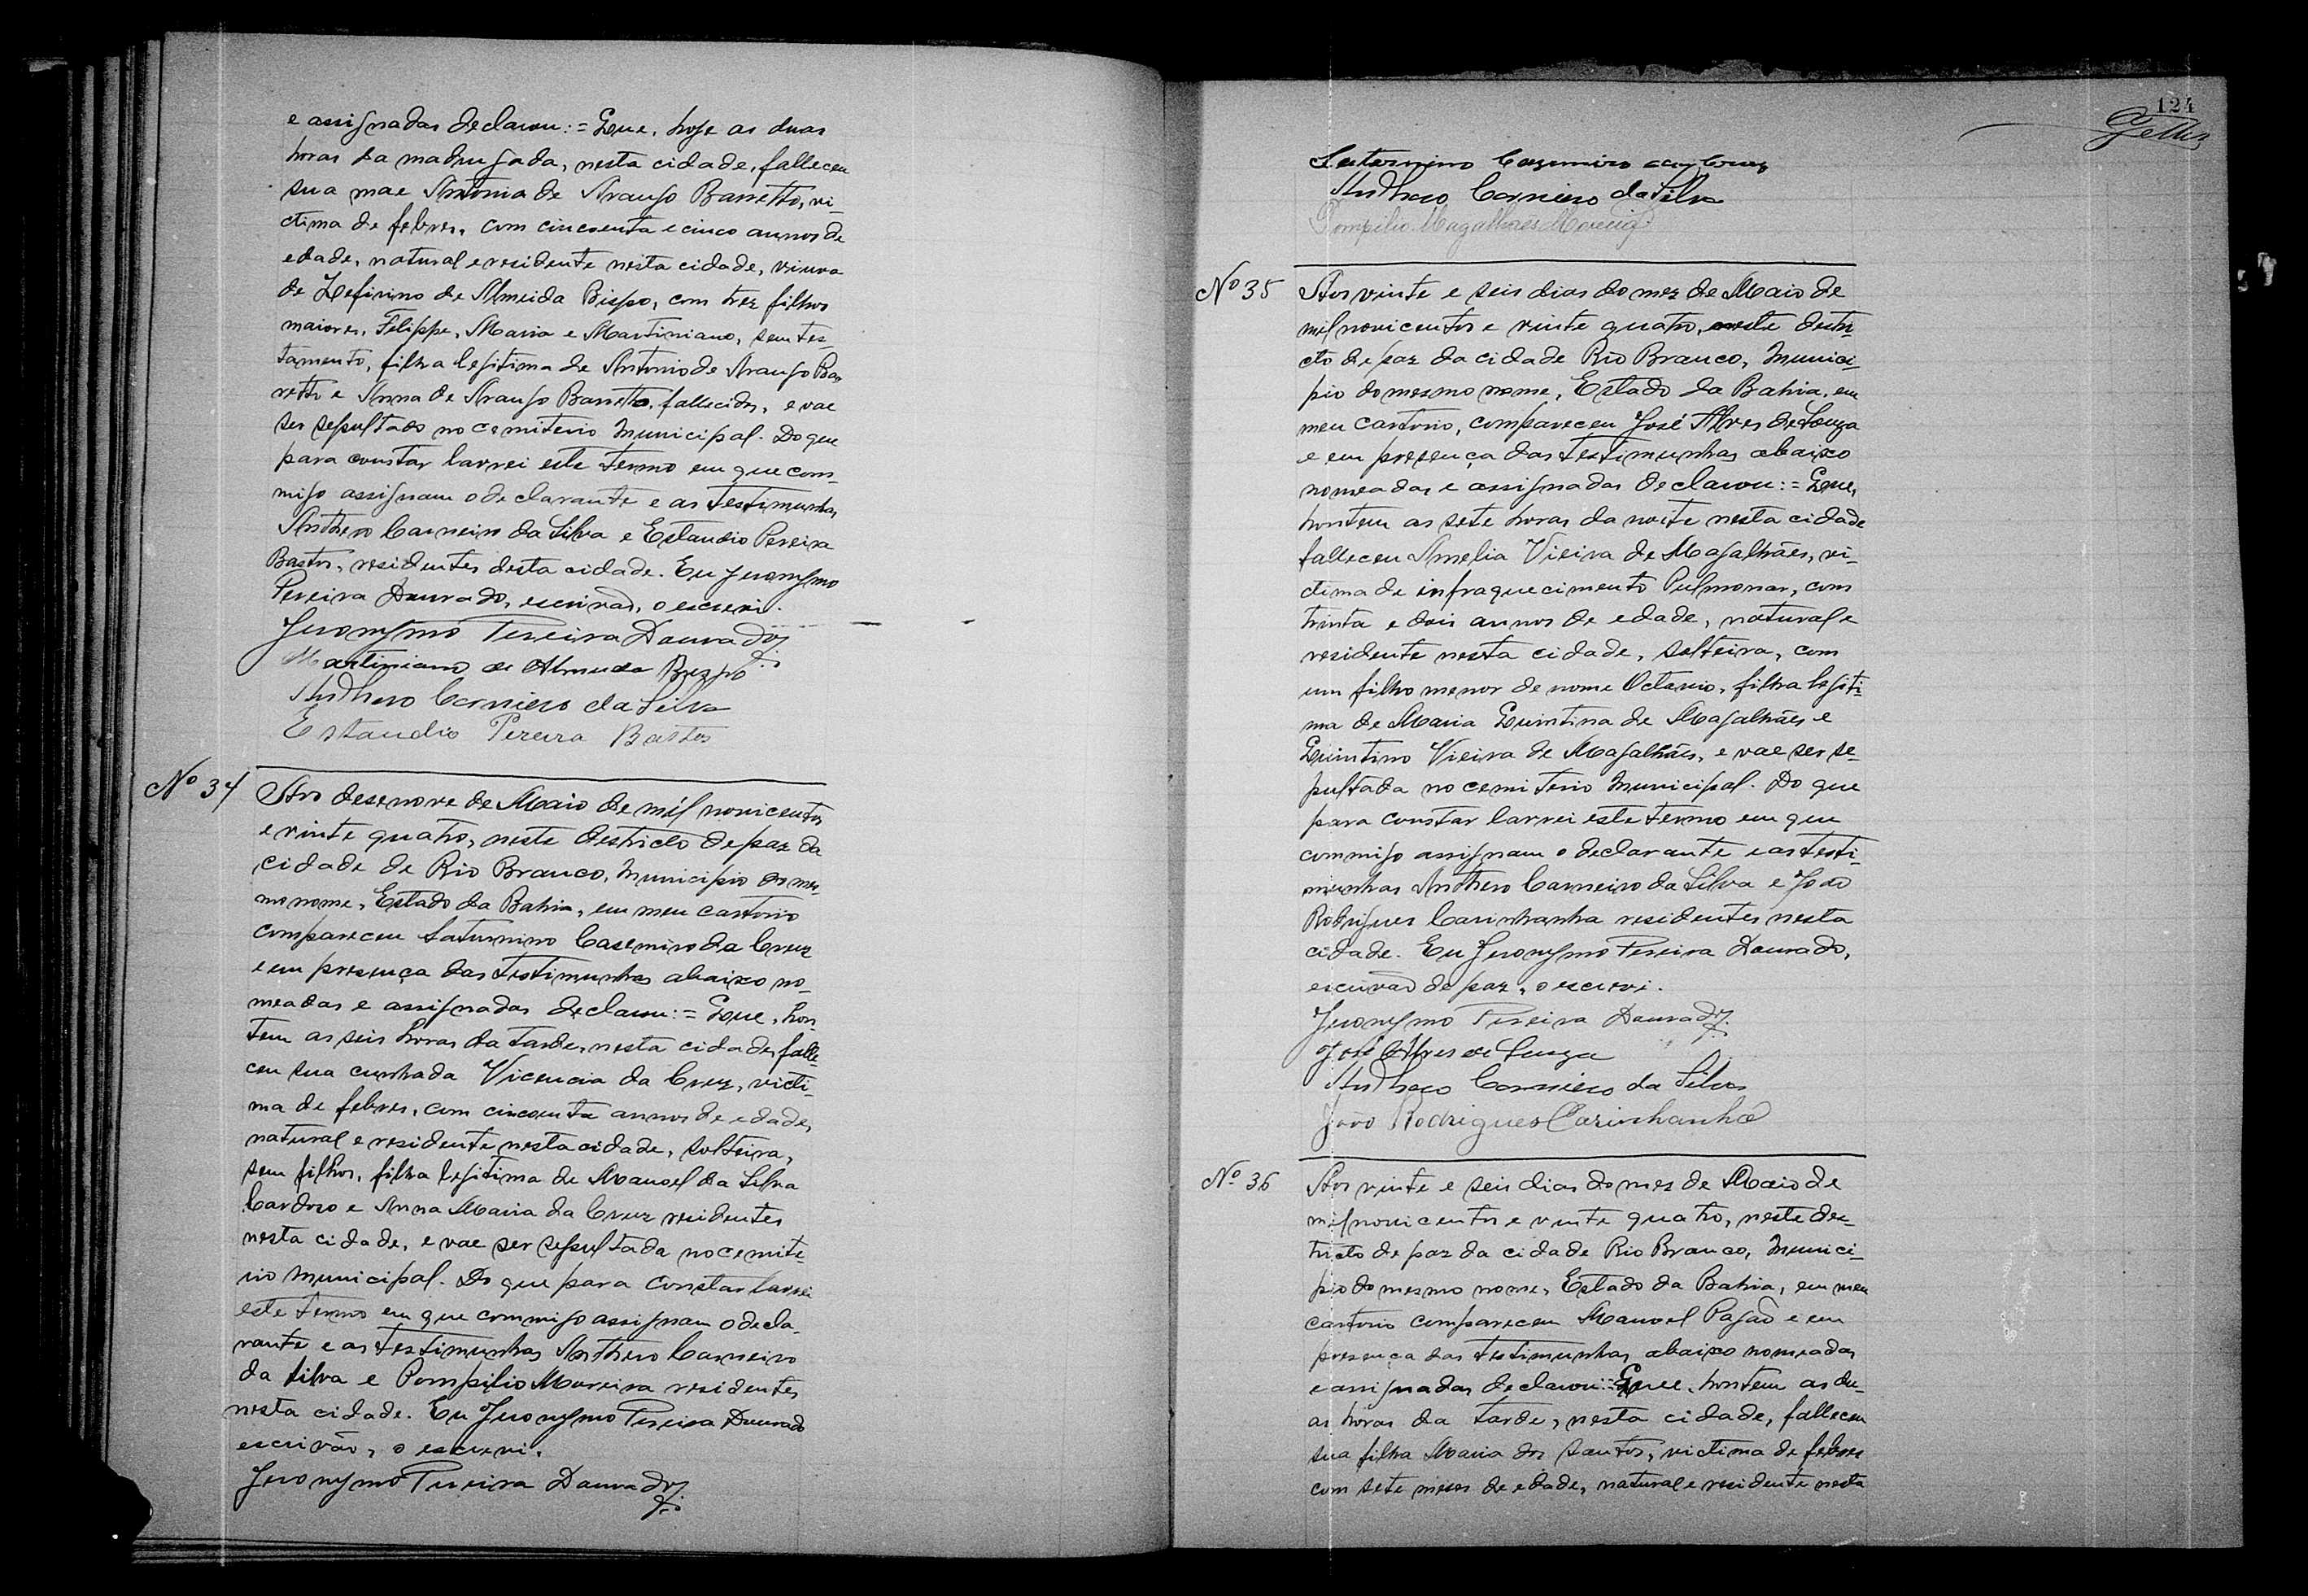 e assignadas declarou:= Que, hoje as duas
horas da madrugada, nesta cidade, falleceu
sua mae Antonia de Araujo Barretto, vi-
ctima de febres, com cincoenta e cinco annos de
edade, natural e residente nesta cidade, viuva
de Zefirino de Almeida Bispo, com trez filhos
maiores, Felippe, Maria e Martiniano, sem tes-
tamento, filha legitima de Antonio de Araujo Bar
retto e Anna de Araujo Barretto, fallecidos, e vae
ser sepultado no cemiterio Municipal. Do que
para constar lavrei este termo em que com-
migo assignam o declarante e as testimunhas
Anthero Carneiro da Silva e Estaudio Pereira
Bastos, residentes desta cidade. Eu Jeronymo
Pereira Dourado, escrivão, o escrevi.
Jeronymo Pereira Dourado
Martiniano de Almeida Bispo
Anthero Carneiro da Silva
Estaudio Pereira Bastos
Nº 34
Aos desenove de Maio de mil novicentos
e vinte quatro, neste destricto de paz da
cidade de Rio Branco, Municipio do mes-
mo nome, Estado da Bahia, em meu cartorio
compareceu Saturnino Casemiro da Cruz
e em presença das testimunhas abaixo no-
meadas e assignadas declarou:= Que, hon
tem as seis horas da tarde, nesta cidade, falle
ceu sua cunhada Vicencia da Cruz, victi-
ma de febres, com cincoenta annos de edade,
natural e residente nesta cidade, solteira,
sem filhos, filha legitima de Manoel da Silva
Cardoso e Anna Maria da Cruz residentes
nesta cidade, e vae ser sepultada no cemite-
rio Municipal. Do que para constar lavrei
este termo em que commigo assignam o decla-
rante e as testimunhas Anthero Carneiro
da Silva e Pompilio Moreira residentes
nesta cidade. Eu Jeronymo Pereira Dourado
escrivão, o escrevi.
Jeronymo Pereira Dourado
124
Saturnino Cazemiro da Cruz
Anthero Carneiro da Silva
Pompilio Magalhães Moreira
Nº 35
Aos vinte e seis dias do mez de Maio de
mil novicentos e vinte quatro, neste destri-
cto de paz da cidade Rio Branco, Munici-
pio do mesmo nome, Estado da Bahia, em
meu cartorio, compareceu José Alves de Souza
e em presença das testimunhas abaixo
nomeadas e assignadas declarou:= Que,
hontem as sete horas da noite nesta cidade
falleceu Amelia Vieira de Magalhães, vi-
ctima de infraquecimento Pulmonar, com
trinta e dois annos de edade, natural e
residente nesta cidade, solteira, com
um filho menor de nome Octavio, filha legiti-
ma de Maria Quintina de Magalhães e
Quintino Vieira de Magalhães, e vae ser se-
pultada no cemiterio Municipal. Do que
para constar lavrei este termo em que
commigo assignam o declarante e as testi-
munhas Anthero Carneiro da Silva e João
Rodrigues Carinhanha residentes nesta
cidade. Eu Jeronymo Pereira Dourado,
escrivão de paz, o escrevi.
Jeronymo Pereira Dourado
José Alves de Souza
Anthero Carneiro da Silva
João Rodrigues Carinhanha
Nº 36
Aos vinte e seis dias do mez de Maio de
mil novicentos e vinte quatro, neste des-
tricto de paz da cidade Rio Branco, Munici-
pio do mesmo nome, Estado da Bahia, em meu
cartorio compareceu Manoel Pagaõ e em
presença das testimunhas abaixo nomeadas
e assignadas declarou:= Que, hontem as du-
as horas da tarde, nesta cidade, falleceu
sua filha Maria dos Santos, victima de febres
com sete mezes de edade, natural e residente nesta